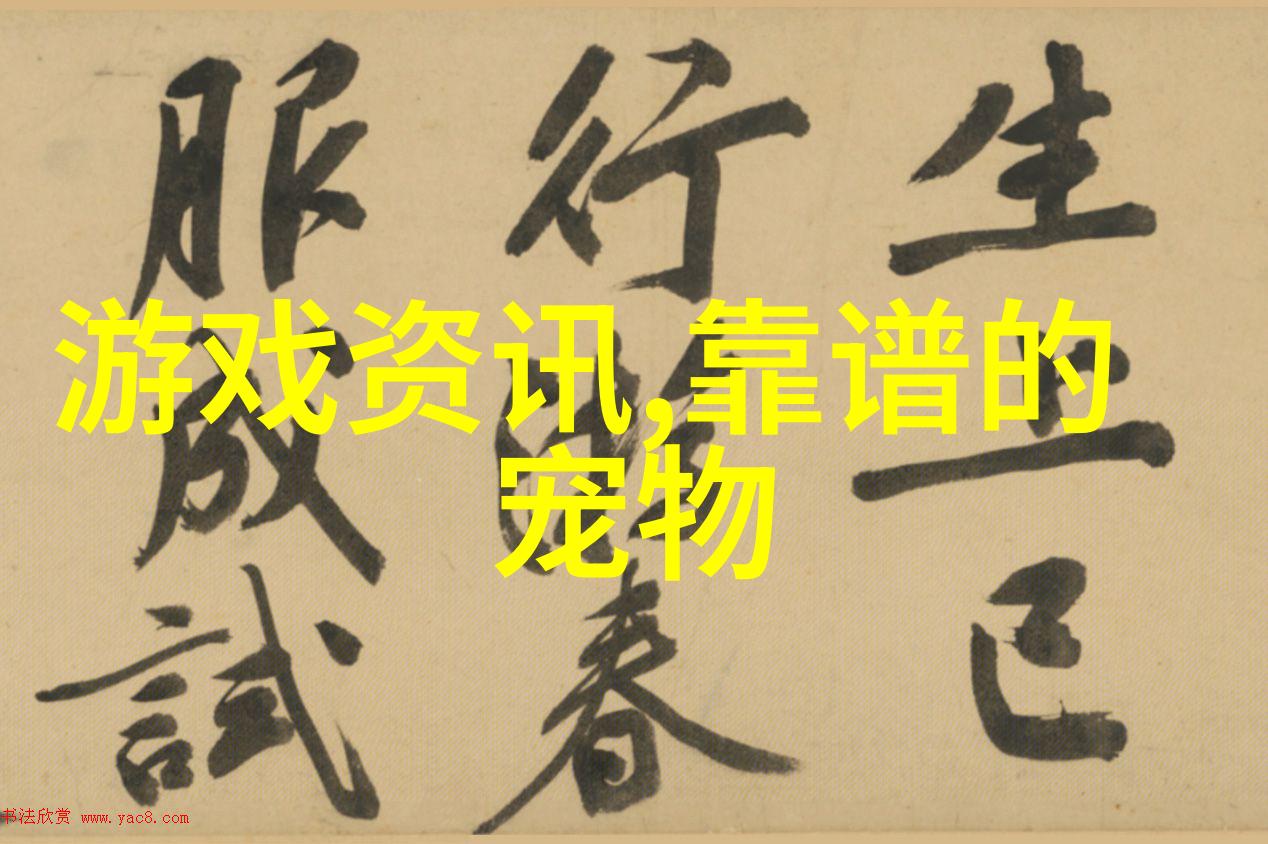 游戏资讯,靠谱的
宠物
生上巳
行春
服成試
书法欣赏 www.yac8.com